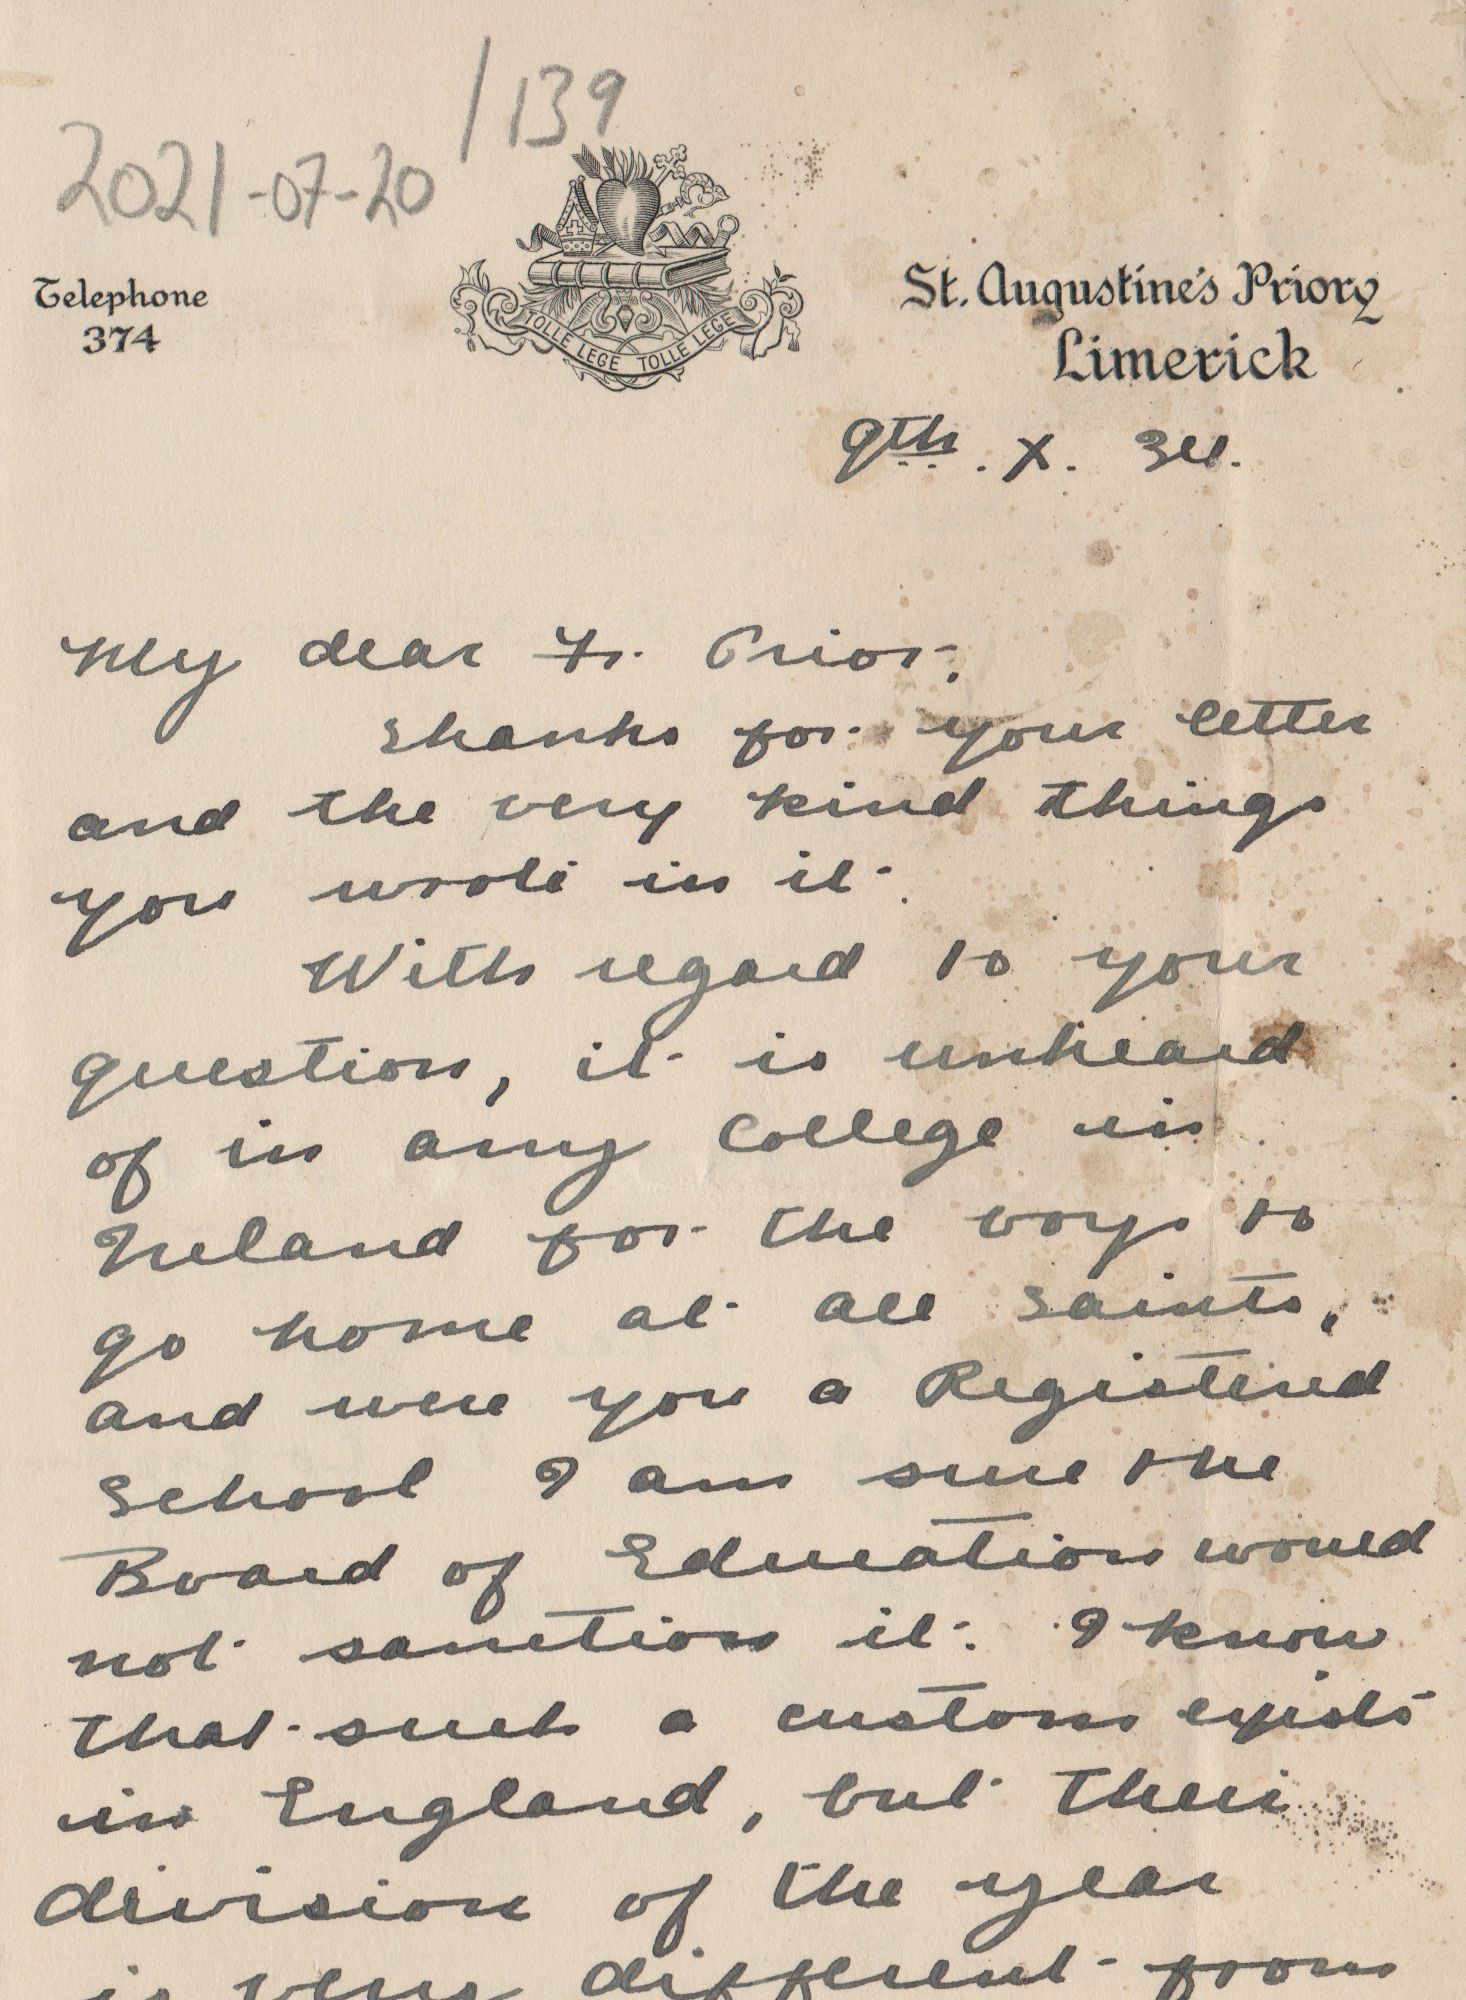 /139
2021-07-20
Telephone
374
TOLLE LEGE TOLLE LEGE
St. Augustine's Priory
Limerick
9th. X. 34.
My dear Fr. Prior,
Thanks for your letter
and the very kind things
you wrote in it.
With regard to your
question, it is unheard
of in any College in
Ireland for the boys to
go home at All Saints,
and were you a Registered
School I am sure the
Board of Education would
not sanction it. I know
that such a custom exists
in England, but their
division of the year
is very different from